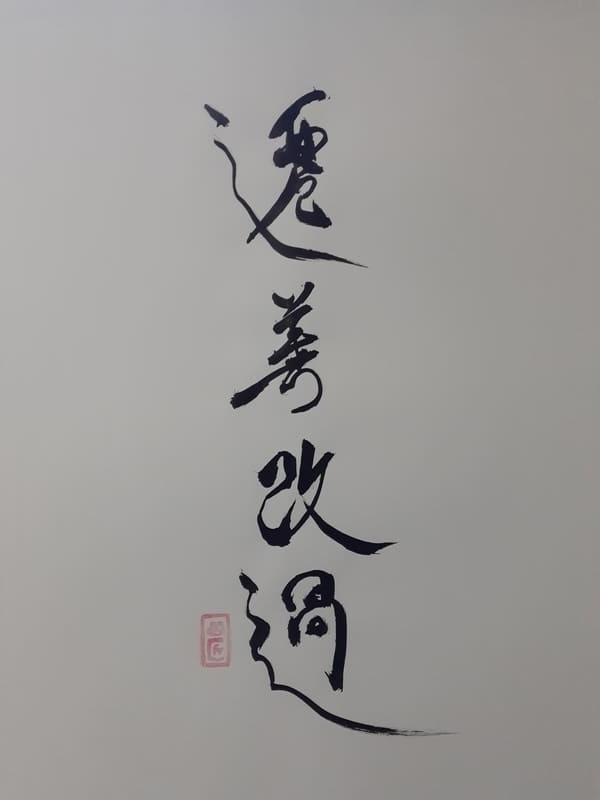 遷善改過